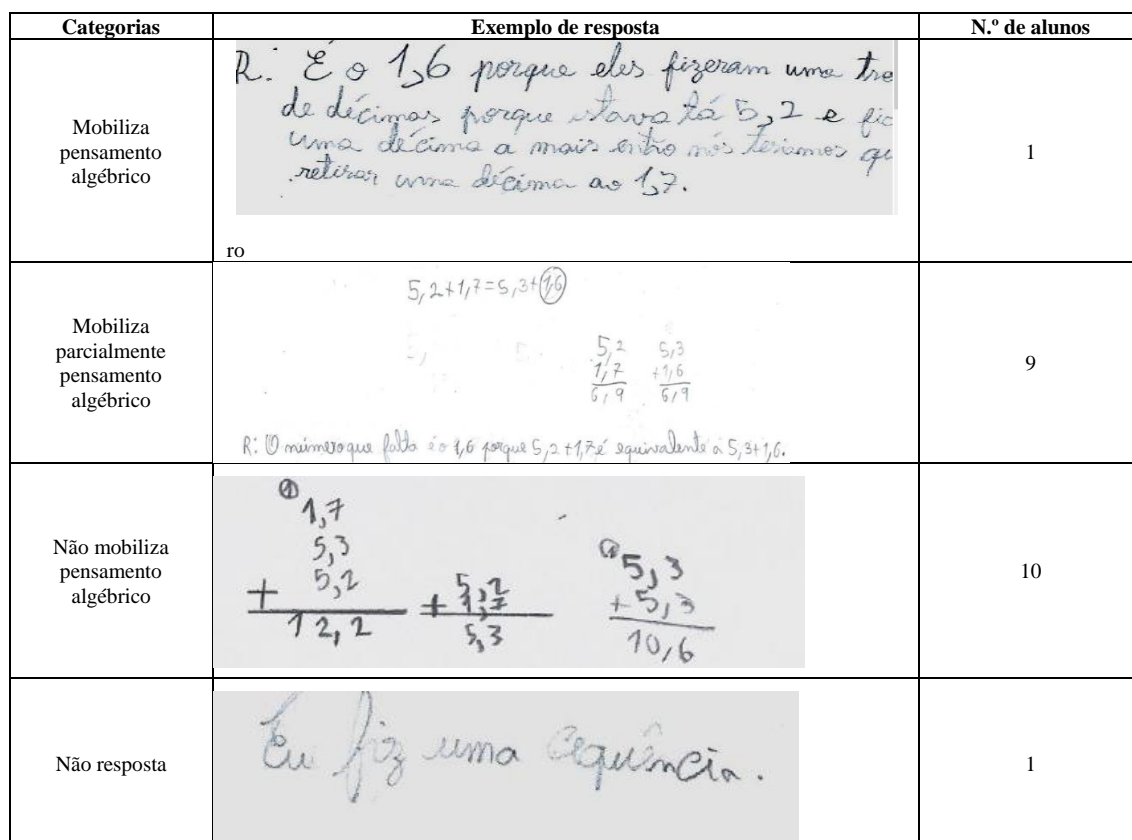 Categorias Exemplo de resposta N.º de alunos
Mobiliza
pensamento
algébrico
R: É o 1,6 porque eles fizeram uma tro
de décimas porque estava lá 5,2 e fic
uma décima a mais então nós teriamos qu
retirar uma décima ao 1,7.
ro
1
Mobiliza
parcialmente
pensamento
algébrico
5,2+1,7=5,3+1,6
5,2 5,3
1,7 +1,6
6,9 6,9
R: O número que falta é o 1,6 porque 5,2+1,7 é equivalente a 5,3+1,6.
9
Não mobiliza
pensamento
algébrico
1
1,7
5,3
+ 5,2
12,2
5,2
+ 1,7
5,3
1
5,3
+ 5,3
10,6
10
Não resposta
Eu fiz uma cequência.
1